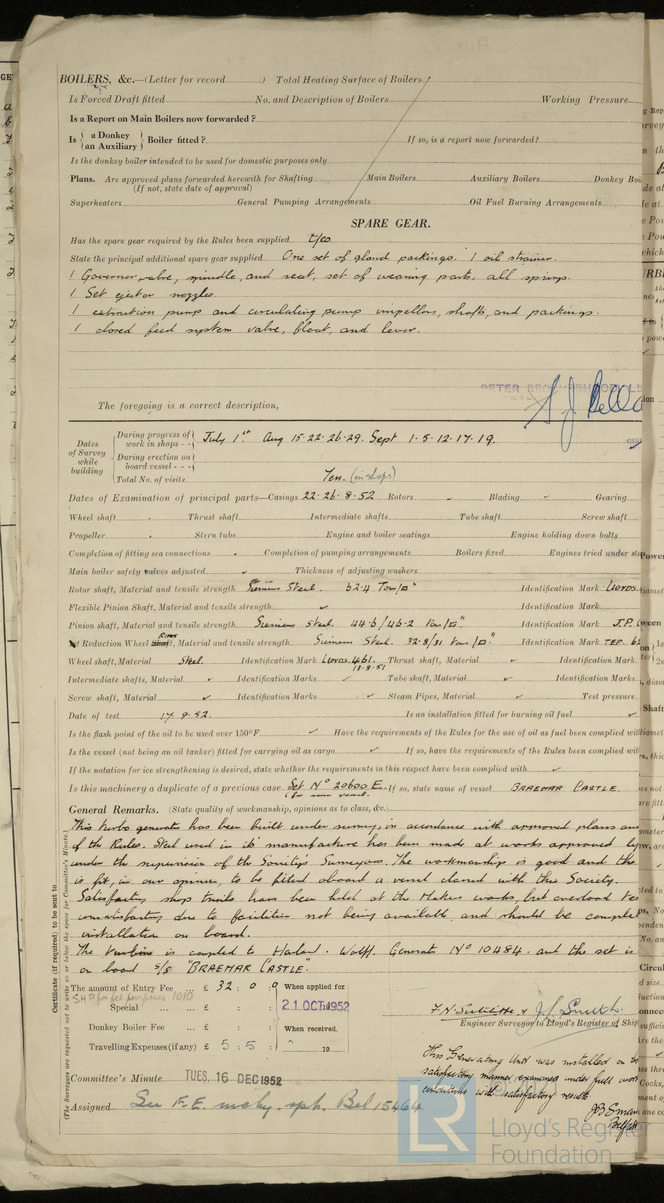 BOILERS, &c.—(Letter for record ) Total Heating Surface of Boilers
Is Forced Draft fitted No. and Description of Boilers Working Pressure
Is a Report on Main Boilers now forwarded?
Is { a Donkey / an Auxiliary } Boiler fitted? If so, is a report now forwarded?
Is the donkey boiler intended to be used for domestic purposes only
Plans. Are approved plans forwarded herewith for Shafting Main Boilers Auxiliary Boilers Donkey Boi
(If not, state date of approval)
Superheaters General Pumping Arrangements Oil Fuel Burning Arrangements
SPARE GEAR.
Has the spare gear required by the Rules been supplied Yes.
State the principal additional spare gear supplied One set of gland packings. 1 oil strainer.
1 Governor valve, spindle, and seat, set of wearing parts, all springs.
1 Set ejector nozzles.
1 extraction pump and circulating pump impellors, shafts, and packings.
1 closed feed system valve, float, and lever.
The foregoing is a correct description,
Dates of Survey while building
During progress of work in shops - - July 1st Aug 15-22-26-29. Sept 1-5-12-17-19.
During erection on board vessel - - -
Total No. of visits Ten. (in shops)
Dates of Examination of principal parts—Casings 22-26-8-52 Rotors ✓ Blading ✓ Gearing
Wheel shaft Thrust shaft Intermediate shafts Tube shaft Screw shaft
Propeller Stern tube Engine and boiler seatings Engine holding down bolts
Completion of fitting sea connections Completion of pumping arrangements Boilers fixed Engines tried under ste
Main boiler safety valves adjusted ✓ Thickness of adjusting washers
Rotor shaft, Material and tensile strength Siemens Steel. 62.4 Tons/□" Identification Mark LLOYDS.
Flexible Pinion Shaft, Material and tensile strength ✓ Identification Mark
Pinion shaft, Material and tensile strength Siemens Steel. 44.6/46.2 Tons/□" Identification Mark J.P.
1st Reduction Wheel Shaft Rims, Material and tensile strength Siemens Steel. 32.8/31 Tons/□" Identification Mark TEP. 62
Wheel shaft, Material Steel. Identification Mark LLOYDS. 461. Thrust shaft, Material ✓ Identification Mark
13-9-51
Intermediate shafts, Material ✓ Identification Marks ✓ Tube shaft, Material ✓ Identification Marks
Screw shaft, Material ✓ Identification Marks ✓ Steam Pipes, Material ✓ Test pressure
Date of test 17.9.52. Is an installation fitted for burning oil fuel ✓
Is the flash point of the oil to be used over 150°F. ✓ Have the requirements of the Rules for the use of oil as fuel been complied wit
Is the vessel (not being an oil tanker) fitted for carrying oil as cargo ✓ If so, have the requirements of the Rules been complied wit
If the notation for ice strengthening is desired, state whether the requirements in this respect have been complied with ✓
Is this machinery a duplicate of a previous case Set No 20600 E If so, state name of vessel BRAEMAR CASTLE.
(for same vessel.
General Remarks. (State quality of workmanship, opinions as to class, &c.
This turbo generator has been built under survey, in accordance with approved plans and
of the Rules. Steel used in its manufacture has been made at works approved by
under the supervision of the Society's Surveyors. The workmanship is good and the
is fit, in our opinion, to be fitted aboard a vessel classed with this Society.
Satisfactory shop trials have been held at the Makers works, but overload tes
unsatisfactory due to facilities not being available, and should be complete
installation on board.
The turbine is coupled to Harland & Wolff. Generator No 10484 and the set is
on board S/S "BRAEMAR CASTLE."
Certificate (if required) to be sent to
(The Surveyors are requested not to write on or below the space for Committee's Minute.)
The amount of Entry Fee ... £ 32 : 0 : 0
When applied for
Special ... £ : :
21 OCT 1952
Donkey Boiler Fee ... £ : :
When received,
Travelling Expenses (if any) £ 5 : 5 :
19
Engineer Surveyor to Lloyd's Register of Ship
Committee's Minute TUES. 16 DEC 1952
Assigned See F.E. mchy. rpt. Bel 15464
This Generating Unit was installed on
satisfactory manner examined under full work
conditions with satisfactory results
Belfast
LR
Lloyd's Register
Foundation